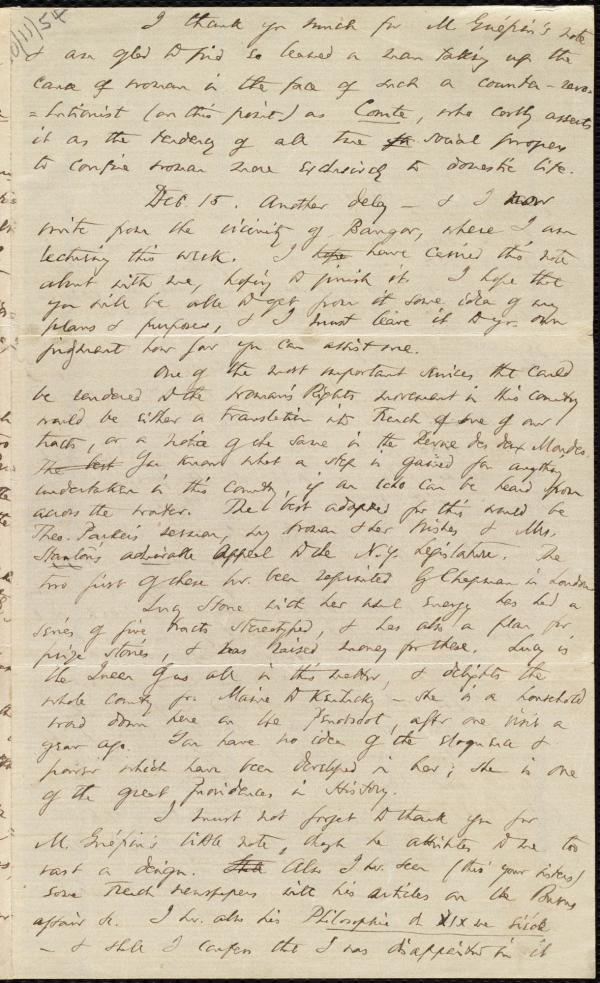 0/11/54
I thank you much for M Guépin's note
& am glad to find so learned a man taking up the
cause of woman in the face of such a counter-revo-
=lutionist (on this point) as Comte, who coolly asserts
it as the tendency of all true social progress
to confine woman more exclusively to domestic life.
Dec. 15. Another delay — & I now
write from the vicinity of Bangor, where I am
lecturing this week. I hope have carried this note
about with me, hoping to finish it. I hope that
you will be able to get from it some idea of my
plans & purposes, & I must leave it to yr. own
judgment how far you can assist me.
One of the most important services that could
be rendered to the Woman's Rights movement in this country
would be either a translation into French of some of our
tracts, or a notice of the same in the Revue des deux Mondes.
The best You know what a step is gained for anything
undertaken in this country, if an echo can be heard from
across the water. The best adapted for this would be
Theo. Parker's sermon, my Woman & her Wishes & Mrs.
Stanton's admirable Appeal to the N.Y. Legislature. The
two first of these hv. been reprinted by Chapman in London
Lucy Stone with her usual energy has had a
series of five tracts stereotyped, & has also a plan for
prize stories, & has raised money for these. Lucy is
the Queen of us all in this matter, & delights the
whole country from Maine to Kentucky — she is a household
word down here on the Penobscot, after one visit a
year ago. You have no idea of the eloquence &
power which have been developed in her; she is one
of the great Providences in History.
I must not forget to thank you for
M. Guépin's little note, though he attributes to me too
vast a design. Also I hv. seen (thro' your sisters)
some French newspapers with his articles on the Burns
affair &c. I hv. also his Philosophie du XIXme siècle
— & still I confess that I was disappointed in it